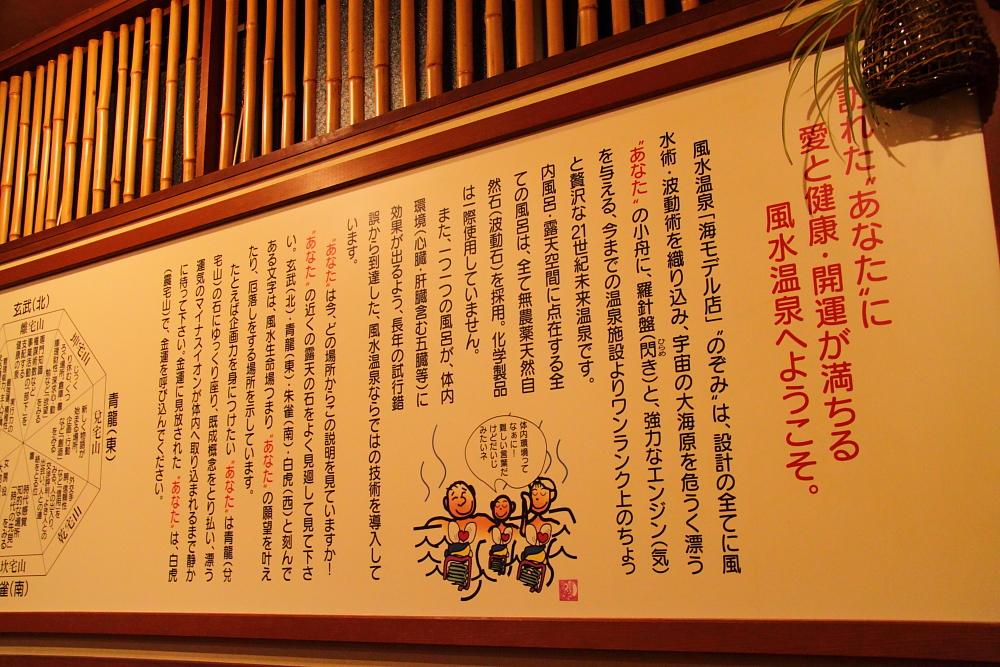 訪れた“あなた”に
愛と健康・開運が満ちる
風水温泉へようこそ。
風水温泉「海モデル店」“のぞみ”は、設計の全てに風
水術・波動術を織り込み、宇宙の大海原を危うく漂う
“あなた”の小舟に、羅針盤(閃き)と、強力なエンジン(気)
ひらめ
を与える、今までの温泉施設よりワンランク上のちょう
と贅沢な21世紀未来温泉です。
内風呂・露天空間に点在する全
ての風呂は、全て無農薬天然自
然石(波動石)を採用。化学製品
は一際使用していません。
また、一つ一つの風呂が、体内
環境(心臓・肝臓含む五臓等)に
効果が出るよう、長年の試行錯
誤から到達した、風水温泉ならではの技術を導入して
います。
“あなた”は今、どの場所からこの説明を見ていますか!
“あなた”の近くの露天の石をよく見廻して見て下さ
い。玄武(北)・青龍(東)・朱雀(南)・白虎(西)と刻んで
ある文字は、風水生命場つまり“あなた”の願望を叶え
たり、厄落しをする場所を示しています。
たとえば企画力を身につけたい“あなた”は青龍(兌
宅山)の石にゆっくり座り、既成概念をとり払い、漂う
運気のマイナスイオンが体内へ取り込まれるまで静か
に待って下さい。金運に見放された“あなた”は、白虎
(震宅山)で、金運を呼び込んでください。
体内環境って
なぁに!
難しい言葉だ
けどだいじ
みたいネ
玄武(北)
離宅山
青龍(東)
兌宅山
坎宅山
雀(南)